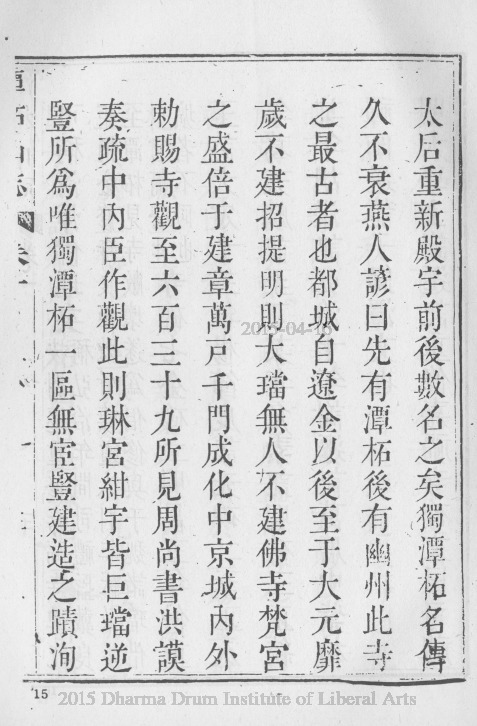 太后重新殿宇前後數名之矣獨潭柘名傳
久不衰燕人諺曰先有潭柘後有幽州此寺
之最古者也都城自遼金以後至于大元靡
歲不建招提明則大璫無人不建佛寺梵宮
之盛倍于建章萬戸千門成化中京城內外
勅賜寺觀至六百三十九所見周尚書洪謨
奏疏中內臣作觀此則琳宮紺宇皆巨璫逆
豎所爲唯獨潭柘一區無宦豎建造之蹟洵
山志 卷一
2015-04-16
15
2015 Dharma Drum Institute of Liberal Arts